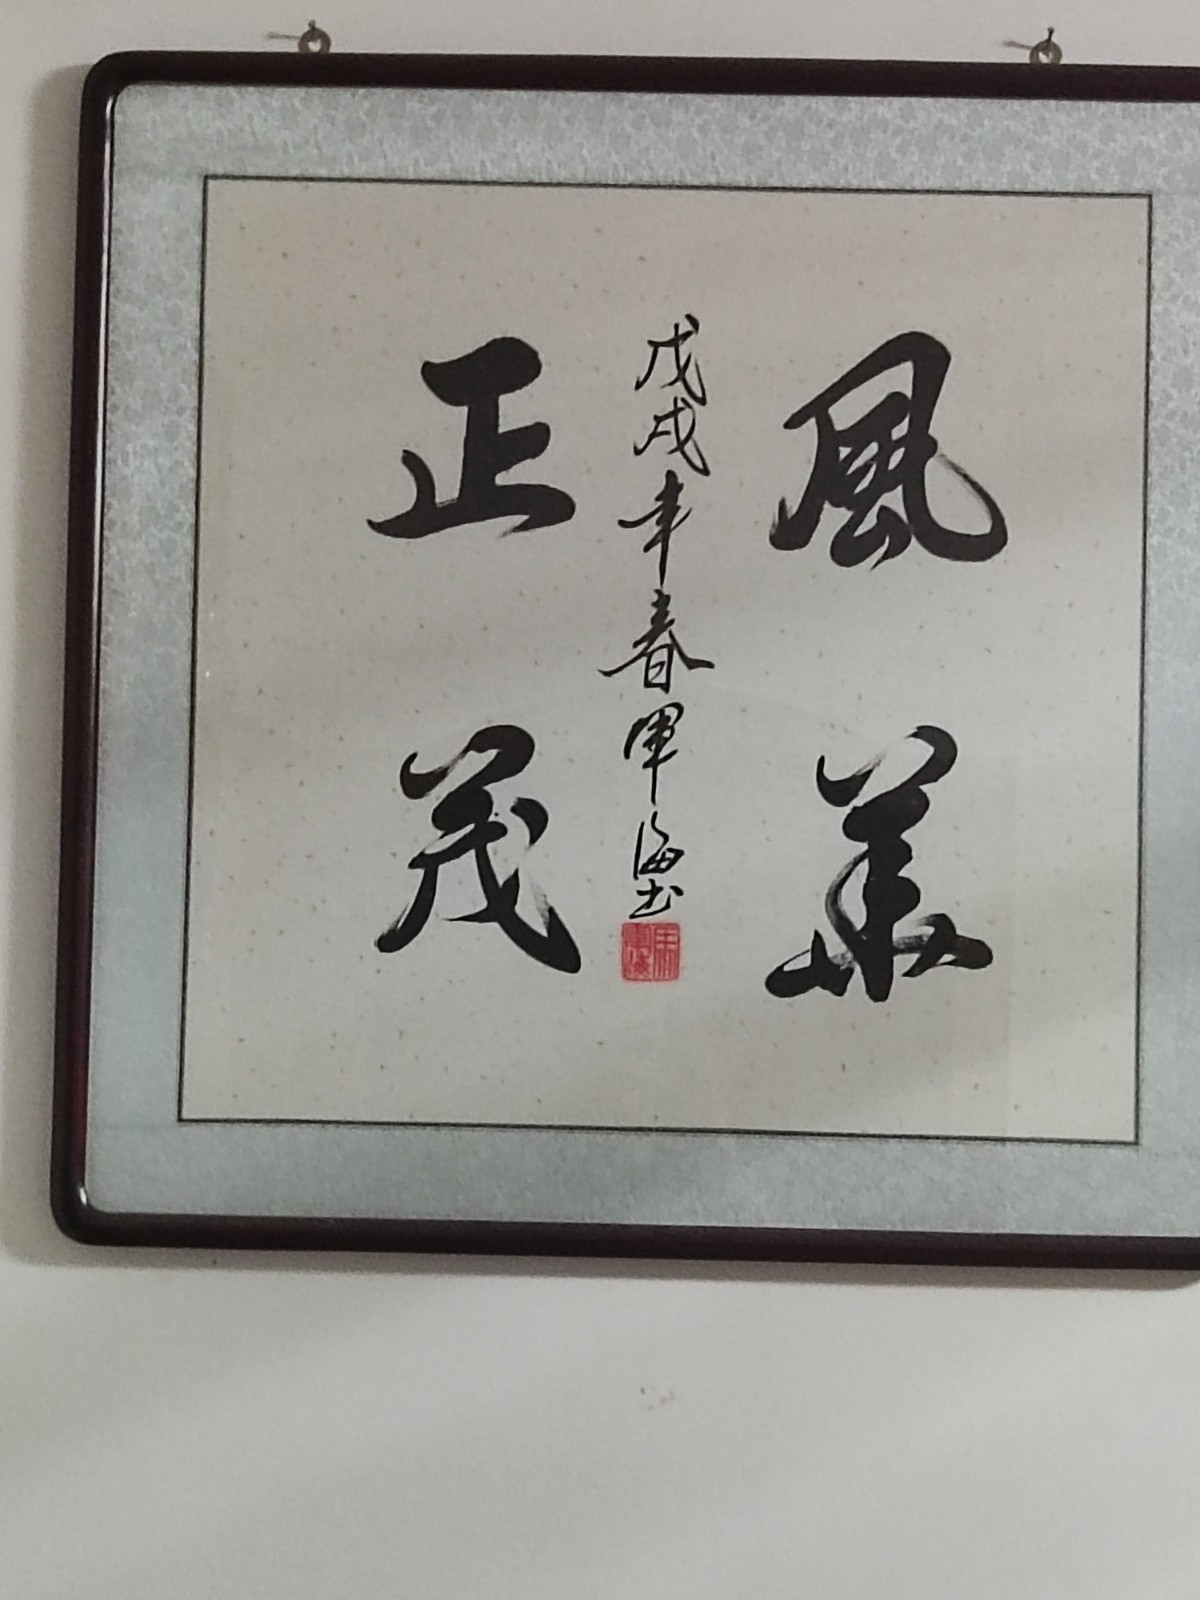 風華
戊戌年春軍海书
正茂